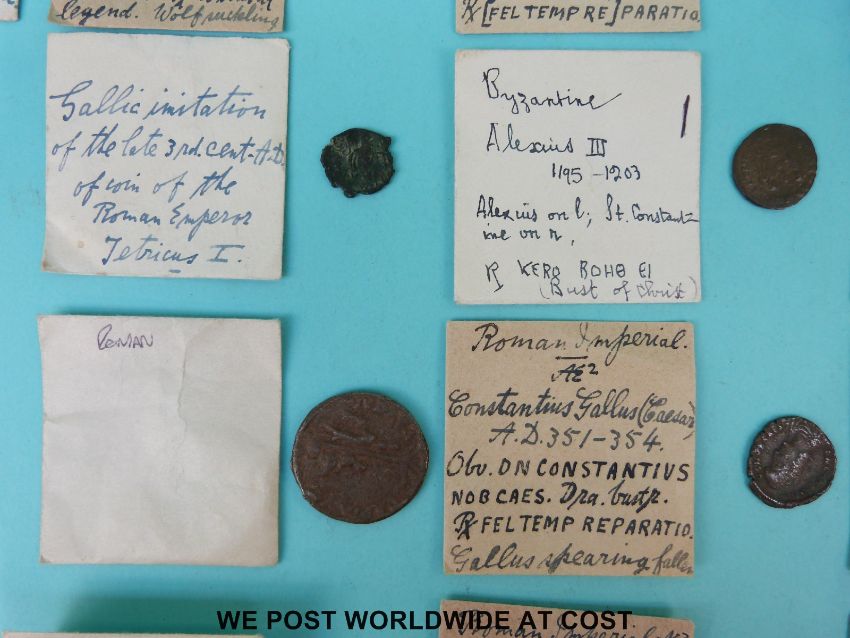 legend. Wolf suckling
℞ [FEL TEMP RE]PARATIO.
Gallic imitation
of the late 3rd. cent. A.D.
of coin of the
Roman Emperor
Tetricus I.
Byzantine
Alexius III
1195-1203
Alexius on l; St. Constant-
ine on r,
℞ KERO BOHΘ EI
(Bust of Christ)
ROMAN
Roman Imperial.
Æ2
Constantius Gallus (Caesar)
A.D. 351-354.
Obv. DN CONSTANTIVS
NOB CAES. Dra. bust r.
℞ FEL TEMP REPARATIO.
Gallus spearing fallen
Roman Imperial
WE POST WORLDWIDE AT COST